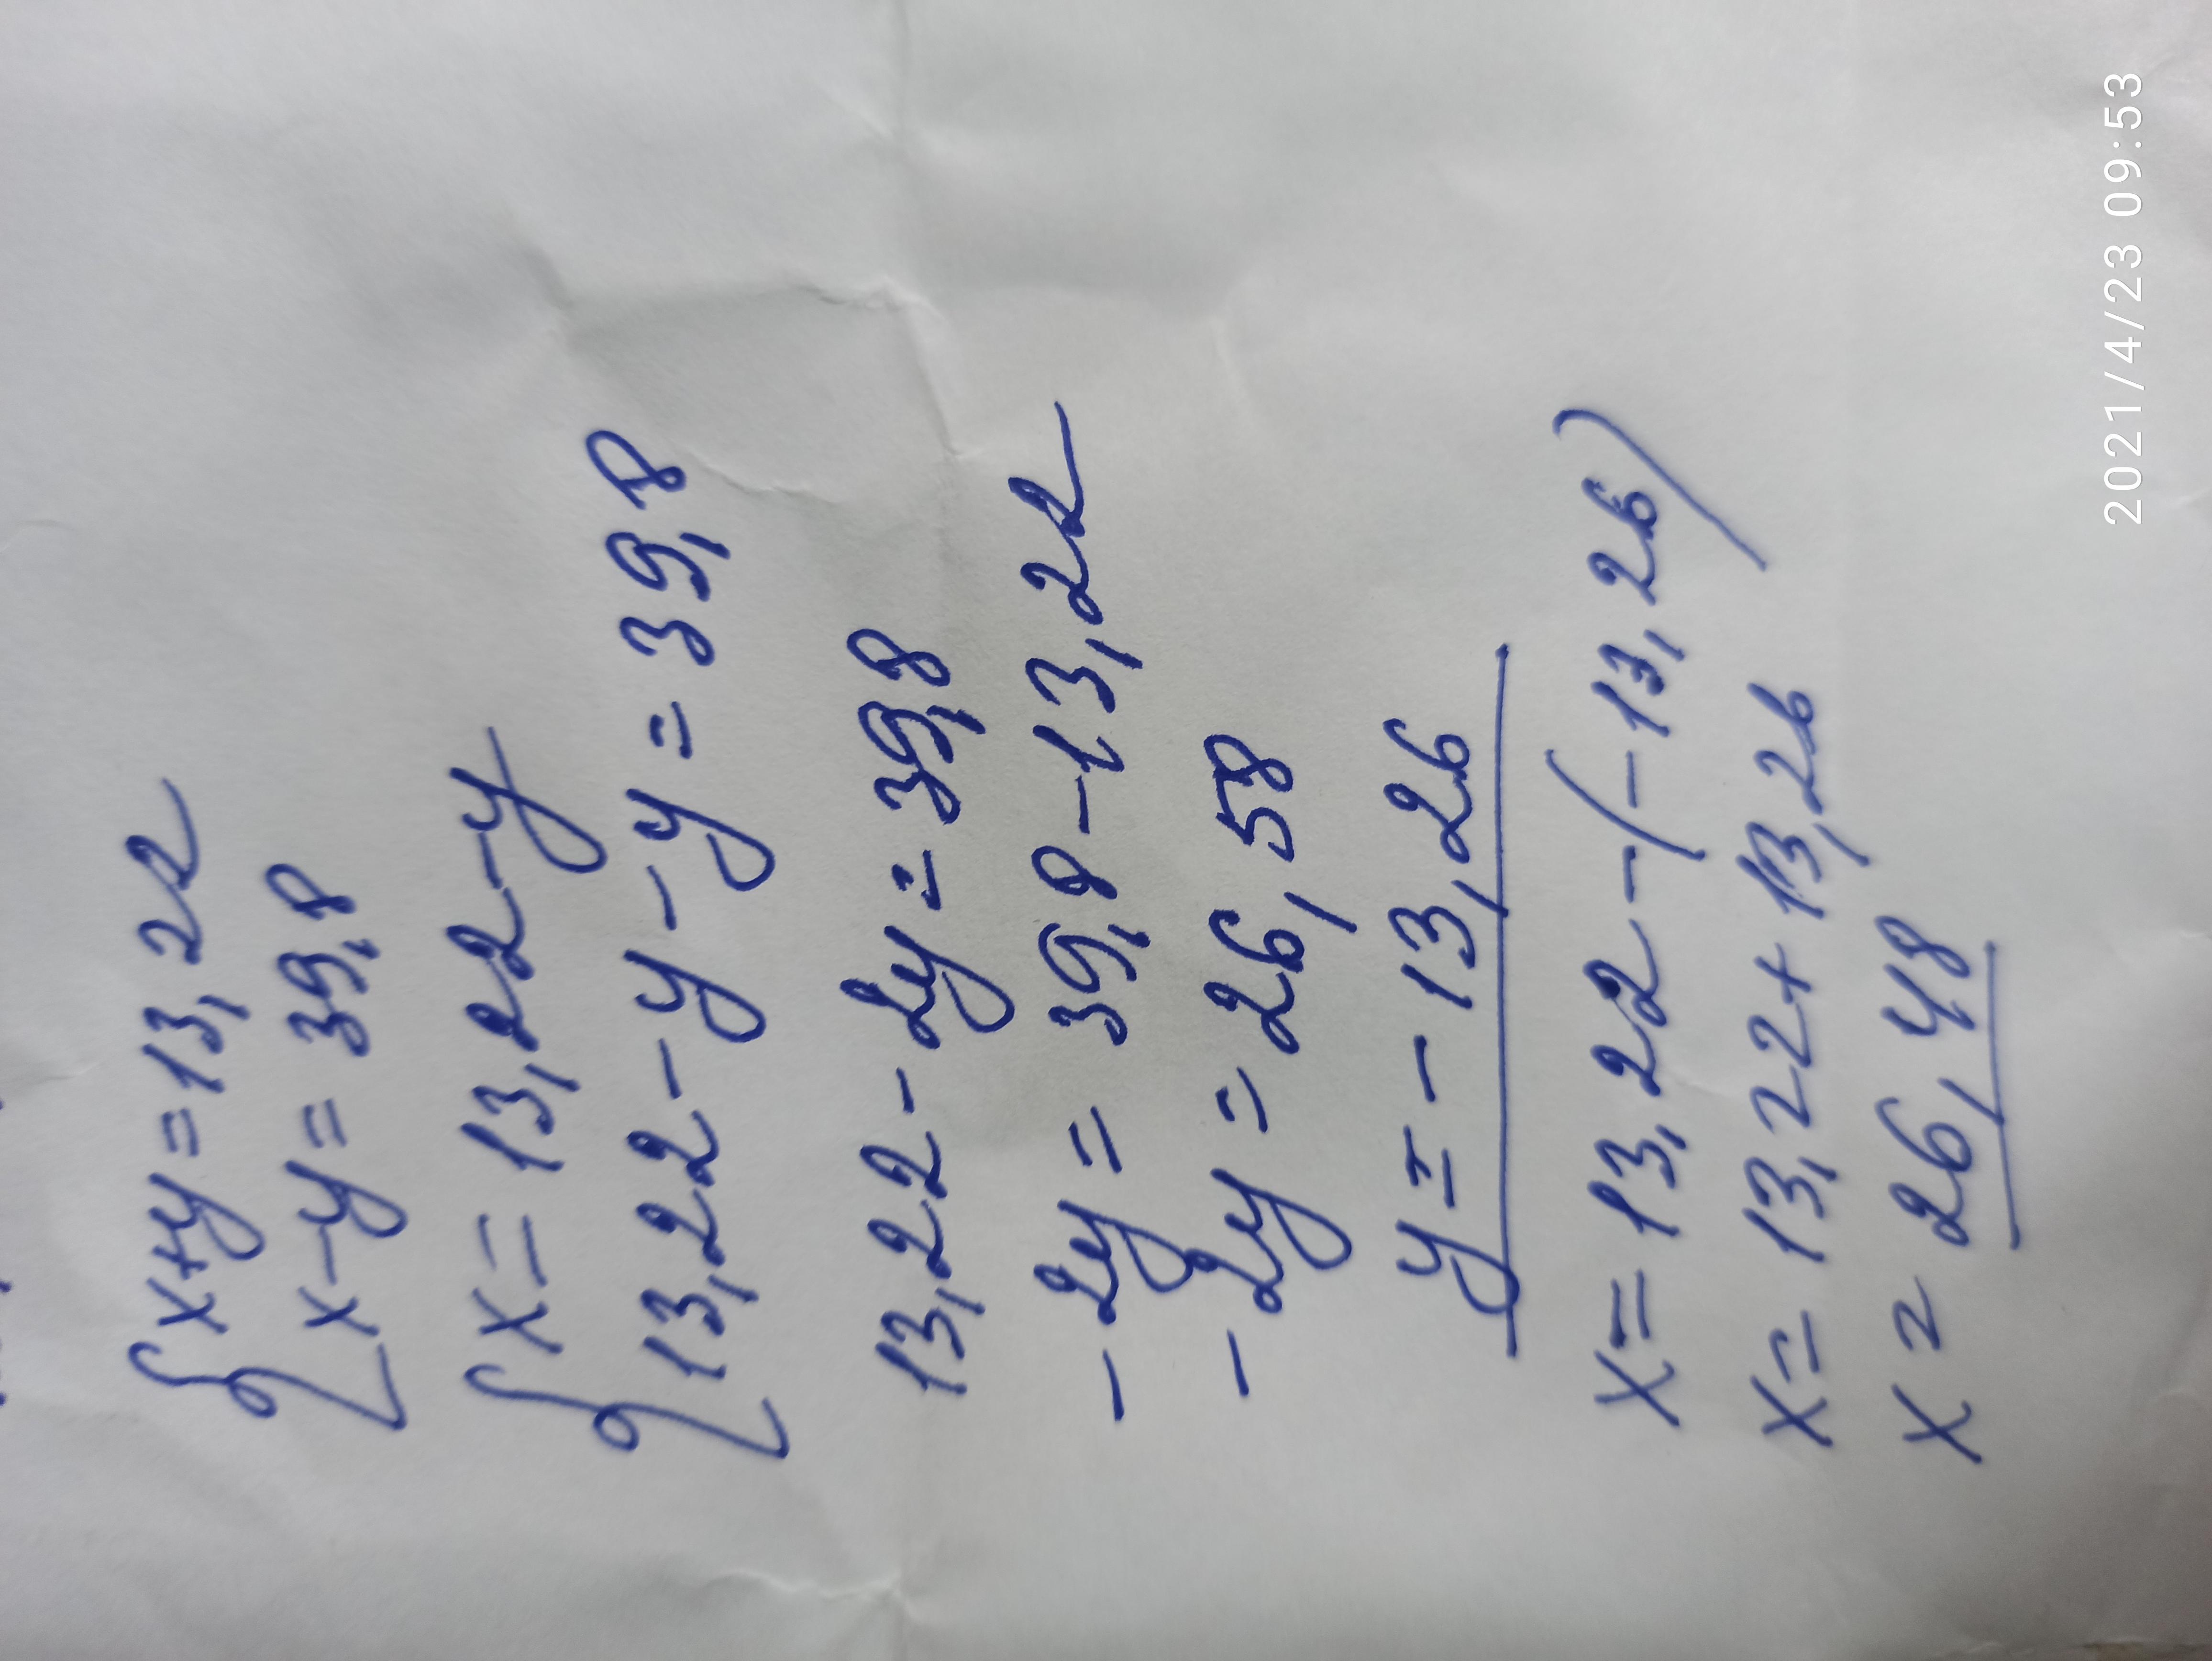 x+y=13,22
x-y=39,8
x=13,22-y
13,22-y-y=39,8
13,22-2y=39,8
-2y=39,8-13,22
-2y=26,58
y=-13,26
x=13,22-(-13,26)
x=13,22+13,26
x=26,48
2021/4/23 09:53